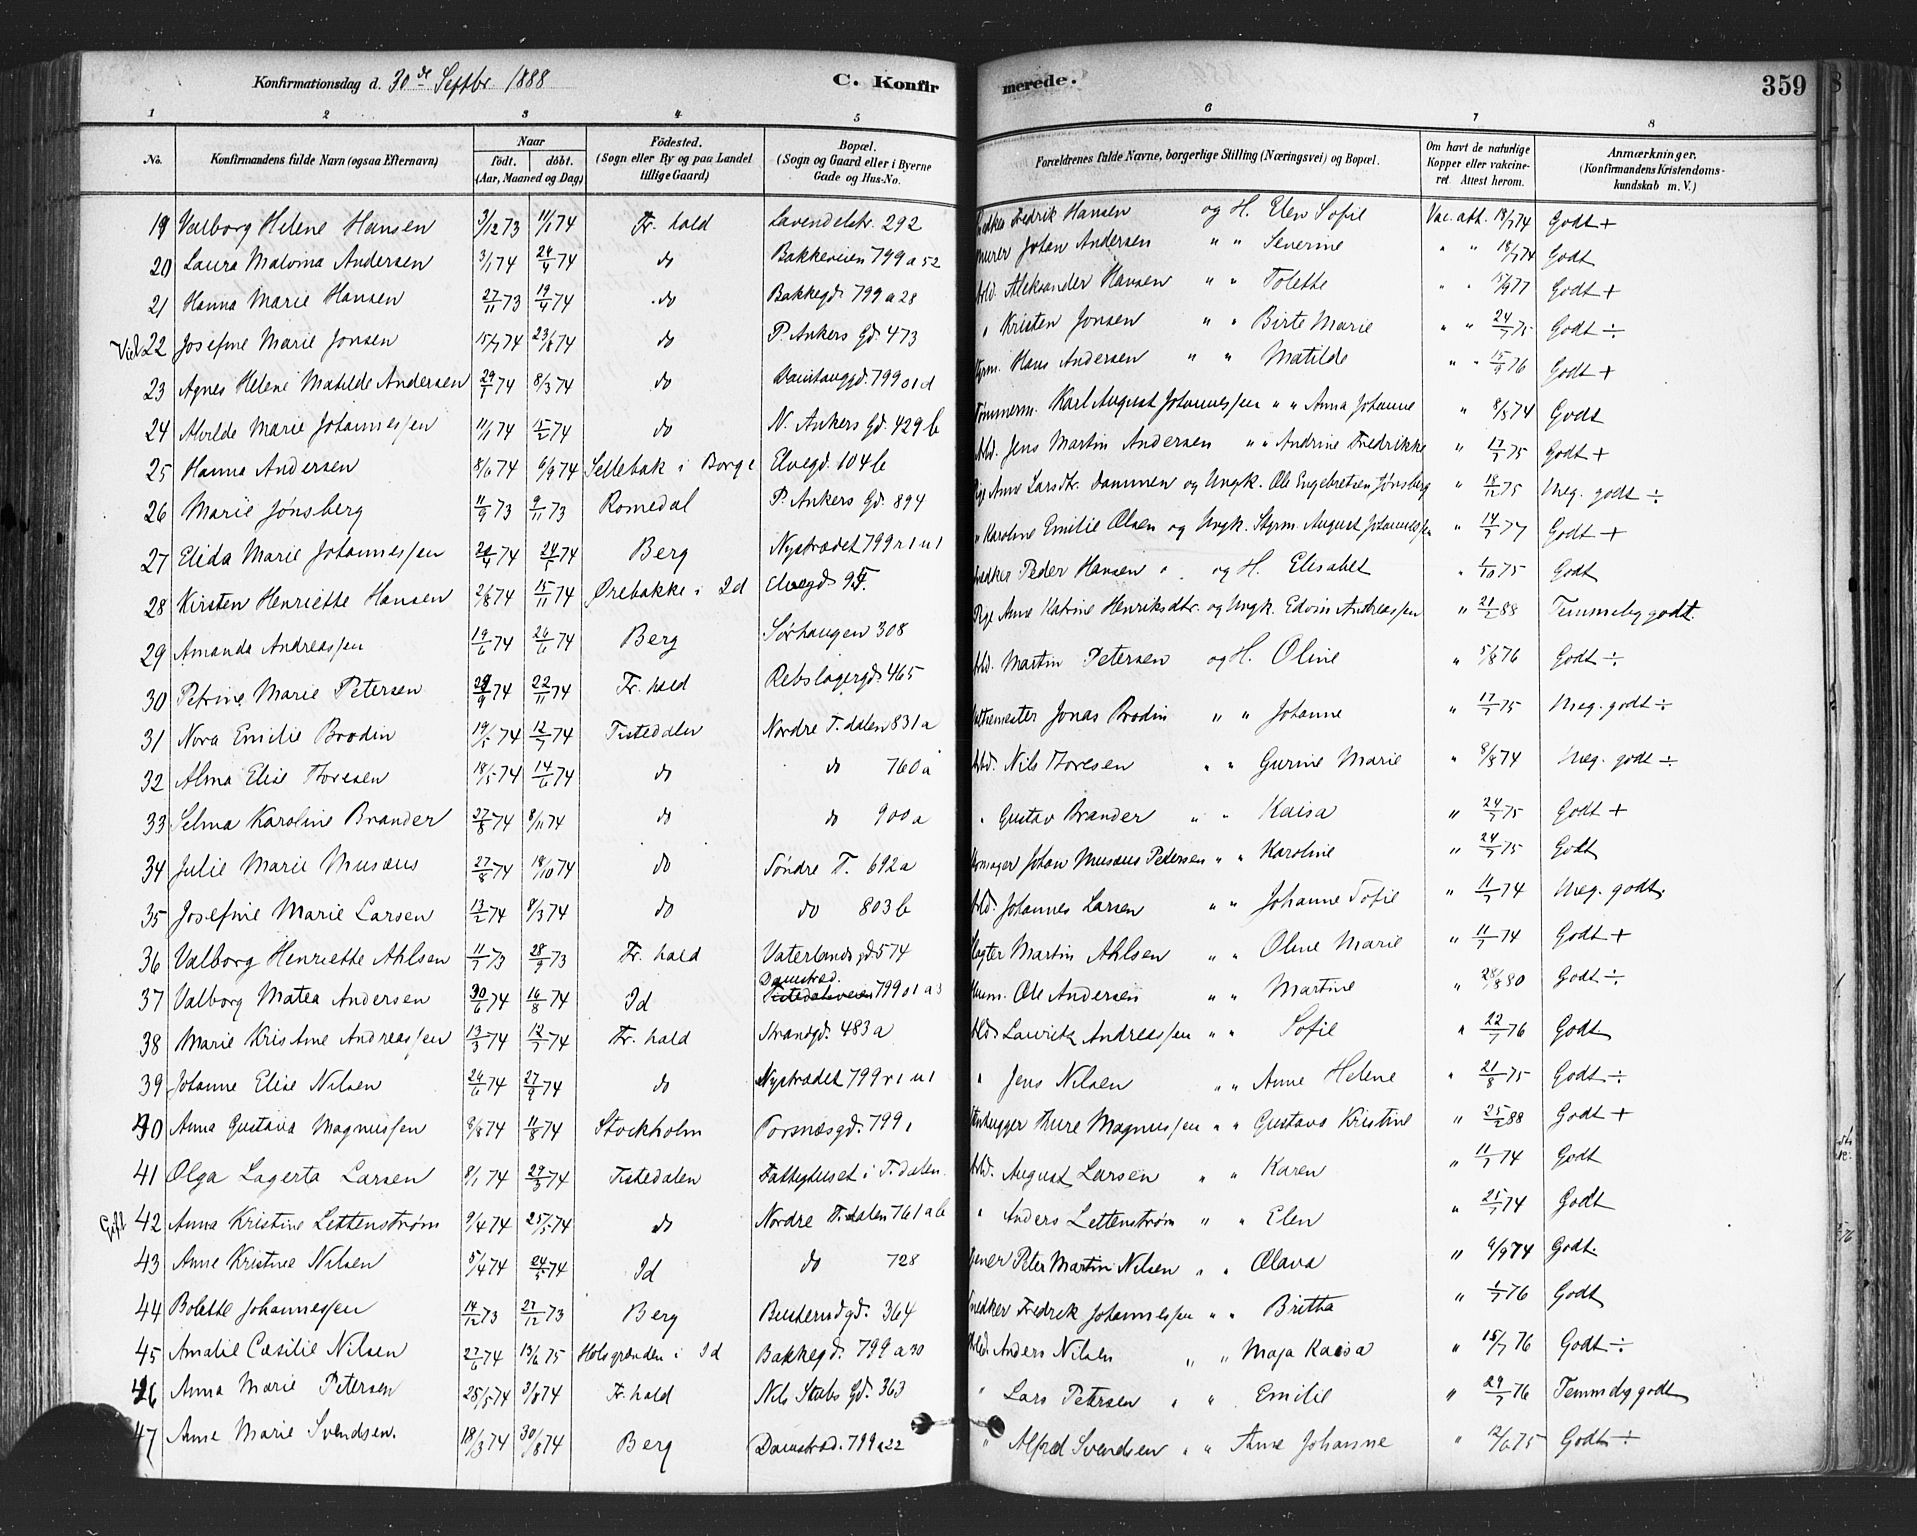 Konfirmationsdag d. 30de Septbr. 1888 C. Konfirmerede. 359
1 2 3 4 5 6 7 8
No. Konfirmandens fulde Navn (ogsaa Efternavn) Naar født. døbt. (Aar, Maaned og Dag) Fødested. (Sogn eller By og paa Landet tillige Gaard) Bopæl. (Sogn og Gaard eller i Byerne Gade og Hus-No. Forældrenes fulde Navne, borgerlige Stilling (Næringsvei) og Bopæl. Om havt de naturlige Kopper eller vakcineret. Attest herom. Anmærkninger. (Konfirmandens Kristendomskundskab m. V.)
19 Valborg Helene Hansen 3/12 73 11/1 74 Fr. hald Lavendelstr. 292 Fredrik Hansen og H. Elen Sofie Vac. att. 18/7 74 Godt +
20 Laura Malvina Andersen 3/1 74 24/4 74 do Bakkeveien 799 a 52 Murer Johan Andersen " " Severine " " 18/7 74 Godt
21 Hanna Marie Hansen 27/11 73 19/4 74 do Bakkegd. 799 a 28 Arbd. Aleksander Hansen " " Tolette " " 15/9 77 Godt +
22 Josefine Marie Jonsen 15/7 74 23/8 74 do P. Ankers Gd. 473 " Kristen Jonsen " " Birte Marie " " 24/7 75 Godt ÷
23 Agnes Helene Matilde Andersen 29/1 74 8/3 74 do 799 o 1 d Styrm. Hans Andersen " " Matilde " " 15/9 76 Godt +
24 Alvilde Marie Johannessen 11/1 74 15/2 74 do N. Ankers Gd. 429 b Tømmerm. Karl August Johannessen " " Anna Johanne " 8/8 74 Godt
25 Hanna Andersen 8/6 74 6/9 74 Sellebak i Borge Elvegd. 104 b Arbd. Jens Martin Andersen " " Andrine Fredrikke " 17/7 75 Godt +
26 Marie Jønsberg 11/9 73 9/11 73 Romedal P. Ankers Gd. 894 Pige Anne Larsdtr. Dammen og Ungk. Ole Engebretsen Jønsberg " 18/12 75 Meg. godt ÷
27 Elida Marie Johannessen 74 24/5 74 Berg Nystrædet 799 r 1 u 1 " Karoline Emilie Olsen og Ungk. Styrm. August Johannessen " 14/7 77 Godt +
28 Kirsten Henriette Hansen 2/8 74 15/11 74 Ørebakke i Id Elvegd. 95. Snedker Peder Hansen og H. Elisabet " 1/10 75 Godt
29 Amanda Andreassen 19/6 74 26/6 74 Berg Sørhaugen 308 Pige Anne Katrine Henriksdtr. og Ungk. Edvin Andreassen " 21/2 88 Temmelig godt.
30 Petrine Marie Petersen 74 22/11 74 Fr. hald Rebslagergd. 465 Arbd. Martin Petersen og H. Oline " 5/8 76 Godt ÷
31 Nora Emilie Brodin 19/5 74 12/7 74 Tistedalen Nordre T. dalen 831 a Jonas Brodin " " Johanne " 17/7 75 Meg. godt ÷
32 Alma Elise Thoresen 18/5 74 14/6 74 do do 760 a Arbd. Nils Thoresen " " Gurine Marie " 8/8 74 Meg. godt ÷
33 Selma Karoline Brander 27/8 74 8/11 74 do do 900 a " Gustav Brander " " Kaisa " 24/7 75 Godt +
34 Julie Marie Musæus 27/8 74 18/10 74 do Søndre T. 692 a Skomager Johan Musæus Petersen " " Karoline " 24/7 75 Godt
35 Josefine Marie Larsen 13/2 74 8/3 74 do do 803 b Arbd. Johannes Larsen " " Johanne Sofie " 11/7 74 Meg. godt.
36 Valborg Henriette Ahlsen 11/7 73 28/9 73 Fr. hald Vaterlands gd. 574 Slagter Martin Ahlsen " " Oline Marie " 11/7 74 Godt +
37 Valborg Matea Andersen 30/6 74 16/8 74 Id Damstræd. Tistedalsveien 799 o 1 a 3 Ole Andersen " " Martine " 28/8 80 Godt ÷
38 Marie Kristine Andreassen 13/3 74 12/7 74 Fr. hald Strandgd. 483 a Arbd. Lauritz Andreassen " " Sofie " 22/7 76 Godt
39 Johanne Elise Nilsen 24/6 74 27/9 74 do Nystrædet 799 r 1 u 1 " Jens Nilsen " " Anne Helene " 21/8 75 Godt ÷
40 Anna Gustava Magnussen 9/8 74 11/8 74 Stockholm Porsnæsgd. 799 1 Stenhugger Thure Magnussen " " Gustava Kristine " 25/2 88 Godt +
41 Olga Lagerta Larsen 8/1 74 29/3 74 Tistedalen Fattighuset i T. dalen. Arbd. August Larsen " " Karen " 11/7 74 Godt
Gift 42 Anna Kristine Lettenstrøm 9/4 74 25/5 74 do Nordre T. dalen 761 a b " Anders Lettenstrøm " " Elen " 25/7 74 Godt
43 Anne Kristine Nilsen 5/4 74 24/5 74 Id do 728 Peter Martin Nilsen " " Olava " 6/9 74 Godt.
44 Bolette Johannessen 14/12 73 27/12 73 Berg 364 Snedker Fredrik Johannessen " " Britha " 1/7 76 Godt
45 Amalie Cæsilie Nilsen 27/6 74 13/6 75 Holsgrænden i Id Bakkegd. 799 a 30 Arbd. Anders Nilsen " " Maja Kaisa " 15/7 76 Godt ÷
46 Anna Marie Petersen 25/5 74 3/8 74 Fr. hald Nils Stubs Gd. 363 " Lars Petersen " " Emilie " 29/7 76 Temmelig godt
47 Anne Marie Svendsen. 18/3 74 30/8 74 Berg Damstræd. 799 a 22 " Alfred Svendsen " " Anne Johanne " 12/6 75 Godt ÷